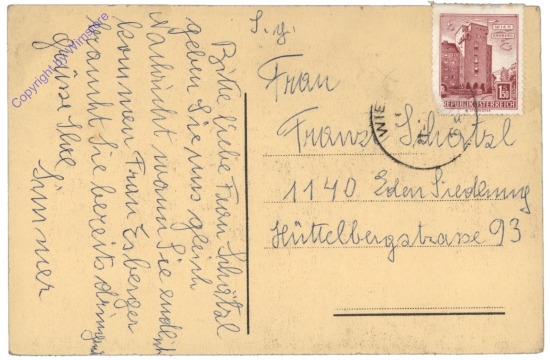 Bitte liebe Frau Schätzl
geben Sie uns gleich
Nachricht wann Sie endlich
kommen Frau Esberger
braucht Sie bereits dringend
Grüsse Ihre
Simmer
S. g.
Frau
Franzi Schätzl
1140 Eden Siedlung
Hüttelbergstrasse 93
WIEN
1.50
REPUBLIK ÖSTERREICH
WIE
Copyright by Winstore